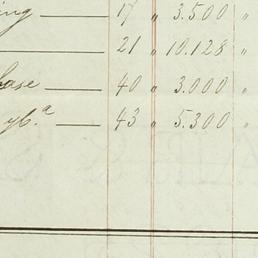 ing 17 " 3.500 "
21 " 10.128 "
hase 40 " 3.000 "
yb.a 43 " 5.300 "